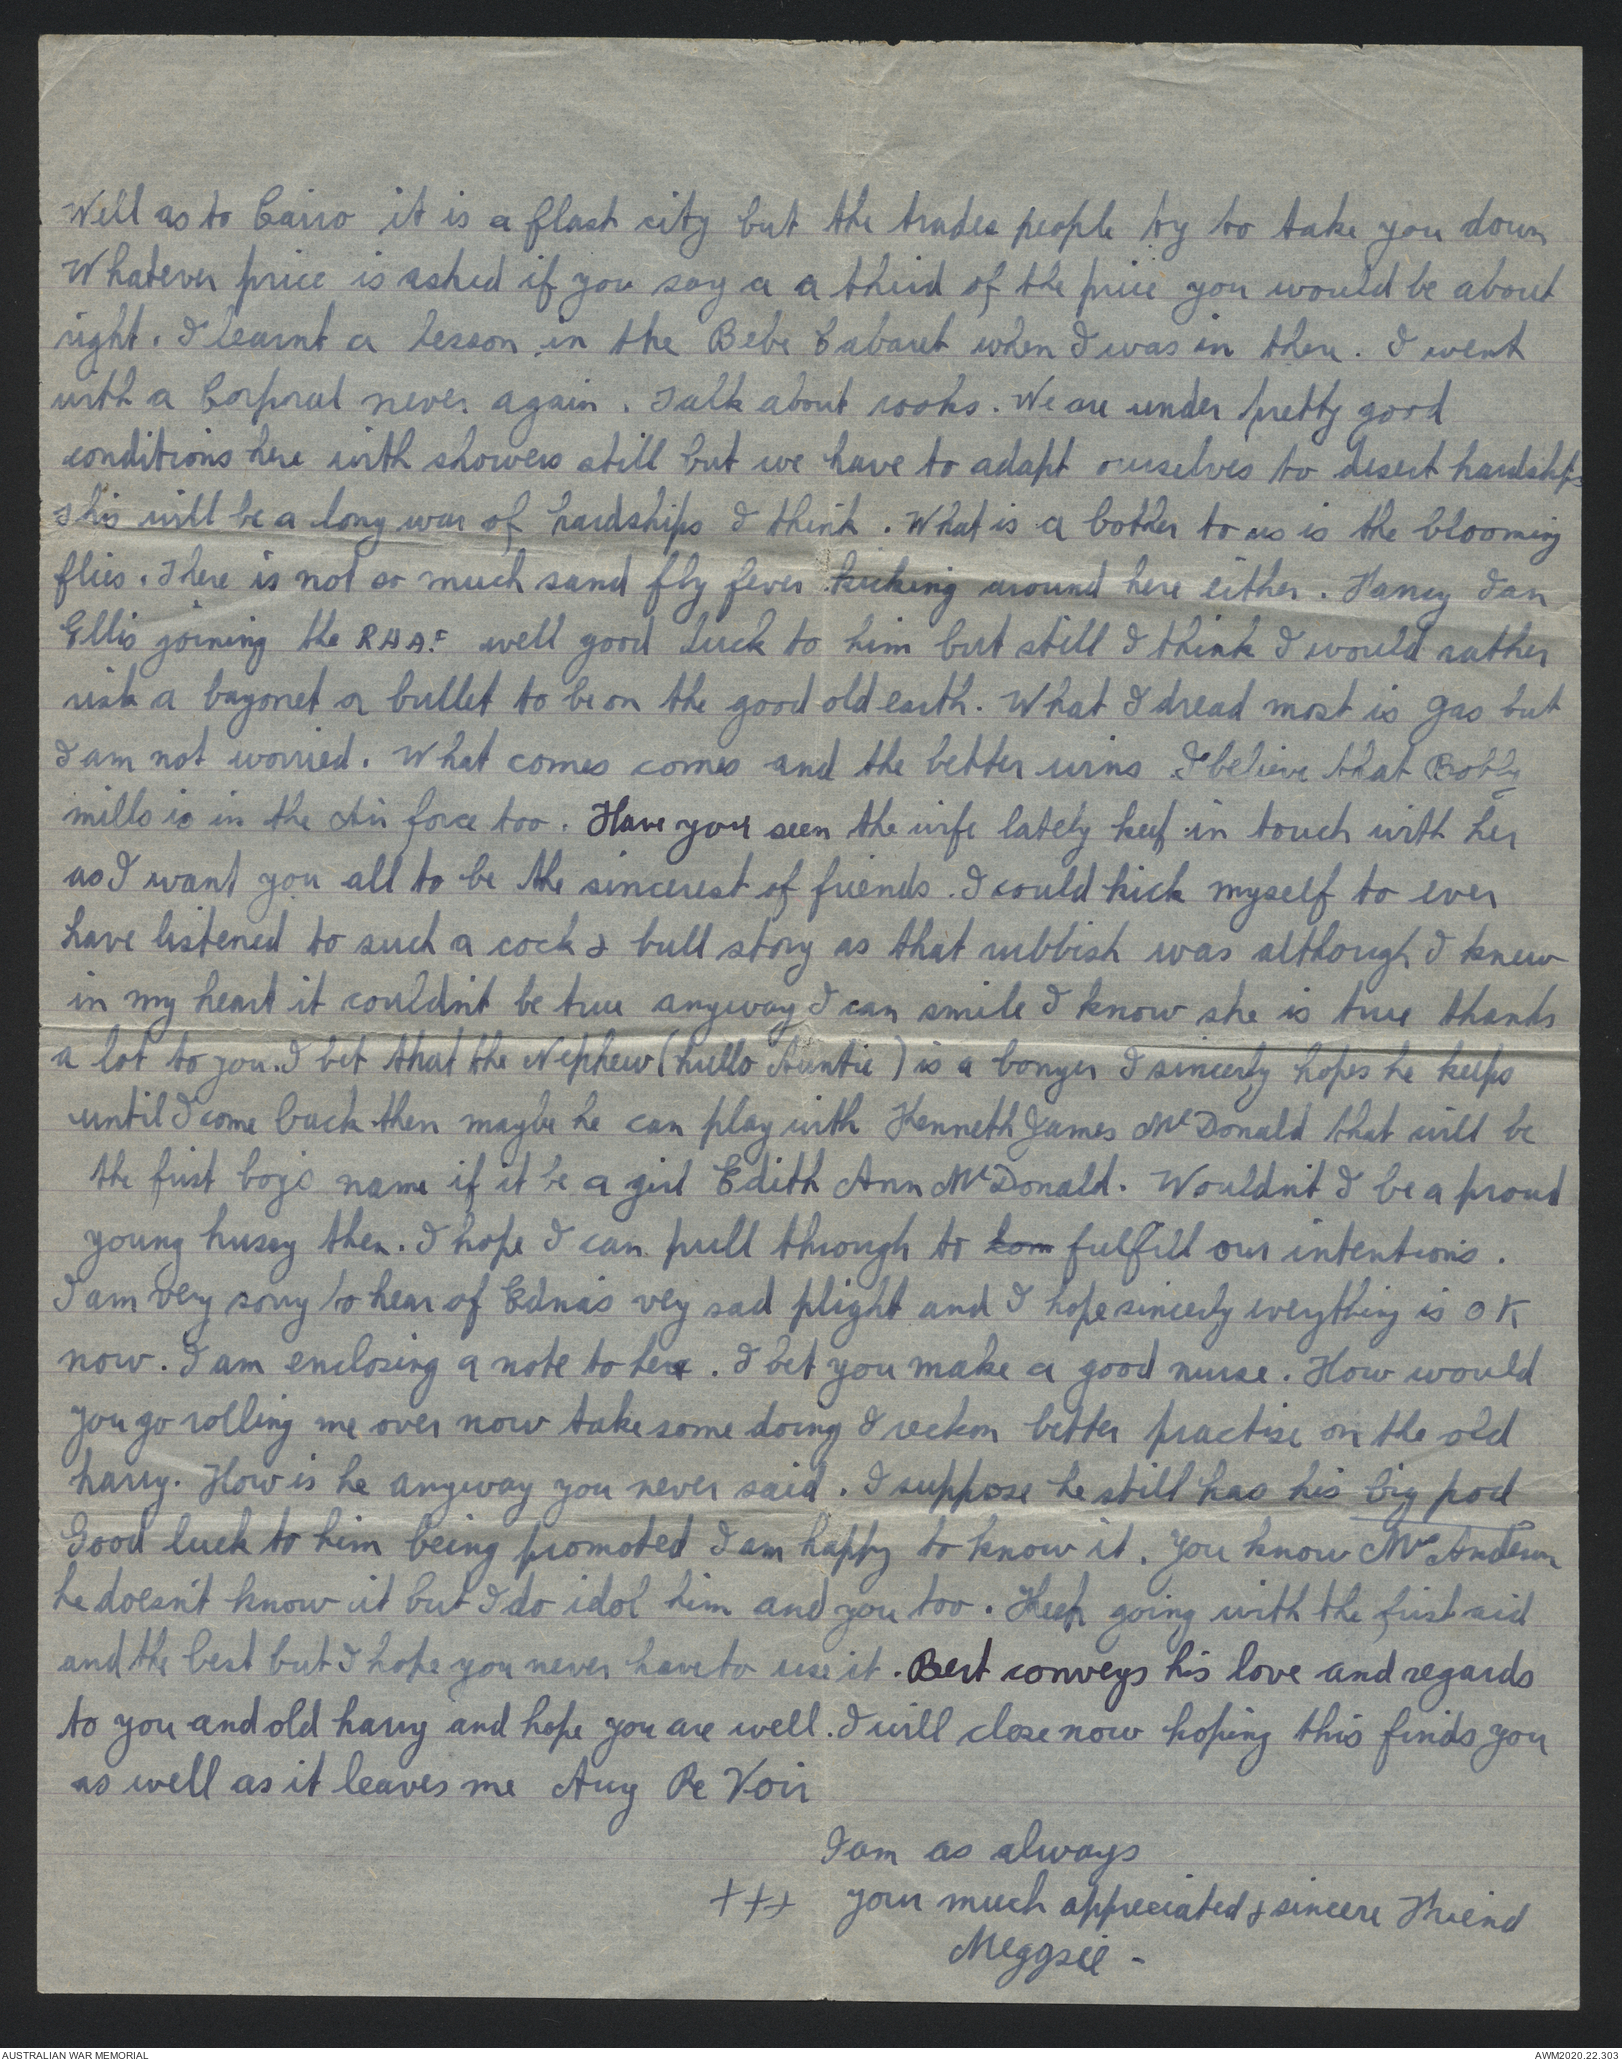 Well as to Cairo it is a flash city but the trades people try to take you down
Whatever price is asked if you say a a third of the price you would be about
right. I learnt a lesson in the Bebe Cabaret when I was in there. I went
with a Corporal never again. Talk about rooks. We are under pretty good
conditions here with showers still but we have to adapt ourselves to desert hardships
This will be a long war of hardships I think. What is a bother to us is the blooming
flies. There is not so much sand fly fever kicking around here either. Fancy Ian
Ellis joining the RAAF well good luck to him but still I think I would rather
risk a bayonet or bullet to be on the good old earth. What I dread most is gas but
I am not worried. What comes comes and the better wins I believe that Bobby
mills is in the Air force too. Have you seen the wife lately keep in touch with her
as I want you all to be the sincerest of friends. I could kick myself to ever
have listened to such a cock & bull story as that rubbish was although I knew
in my heart it couldn't be true anyway I can smile I know she is true thanks
a lot to you. I bet that the Nephew (hullo Auntie) is a bonzer I sincerly hopes he keeps
until I come back then maybe he can play with Kenneth James McDonald that will be
the first boys name if it be a girl Edith Ann McDonald. Wouldn't I be a proud
young hussy then. I hope I can pull through to com fulfill our intentions.
I am very sorry to hear of Edna's vey sad plight and I hope sincerly everything is OK
now. I am enclosing a note to her. I bet you make a good nurse. How would
you go rolling me over now take some doing I reckon better practise on the old
harry. How is he anyway you never said. I suppose he still has his big pod
Good luck to him being promoted I am happy to know it. You know Mrs Anderson
he doesn't know it but I do idol him and you too. Keep going with the first aid
and the best but I hope you never have to use it. Bert conveys his love and regards
to you and old harry and hope you are well. I will close now hoping this finds you
as well as it leaves me Auy Re Voir
I am as always
+++ your much appreciated & sincere Friend
Meggsie -
AUSTRALIAN WAR MEMORIAL
AWM2020.22.303